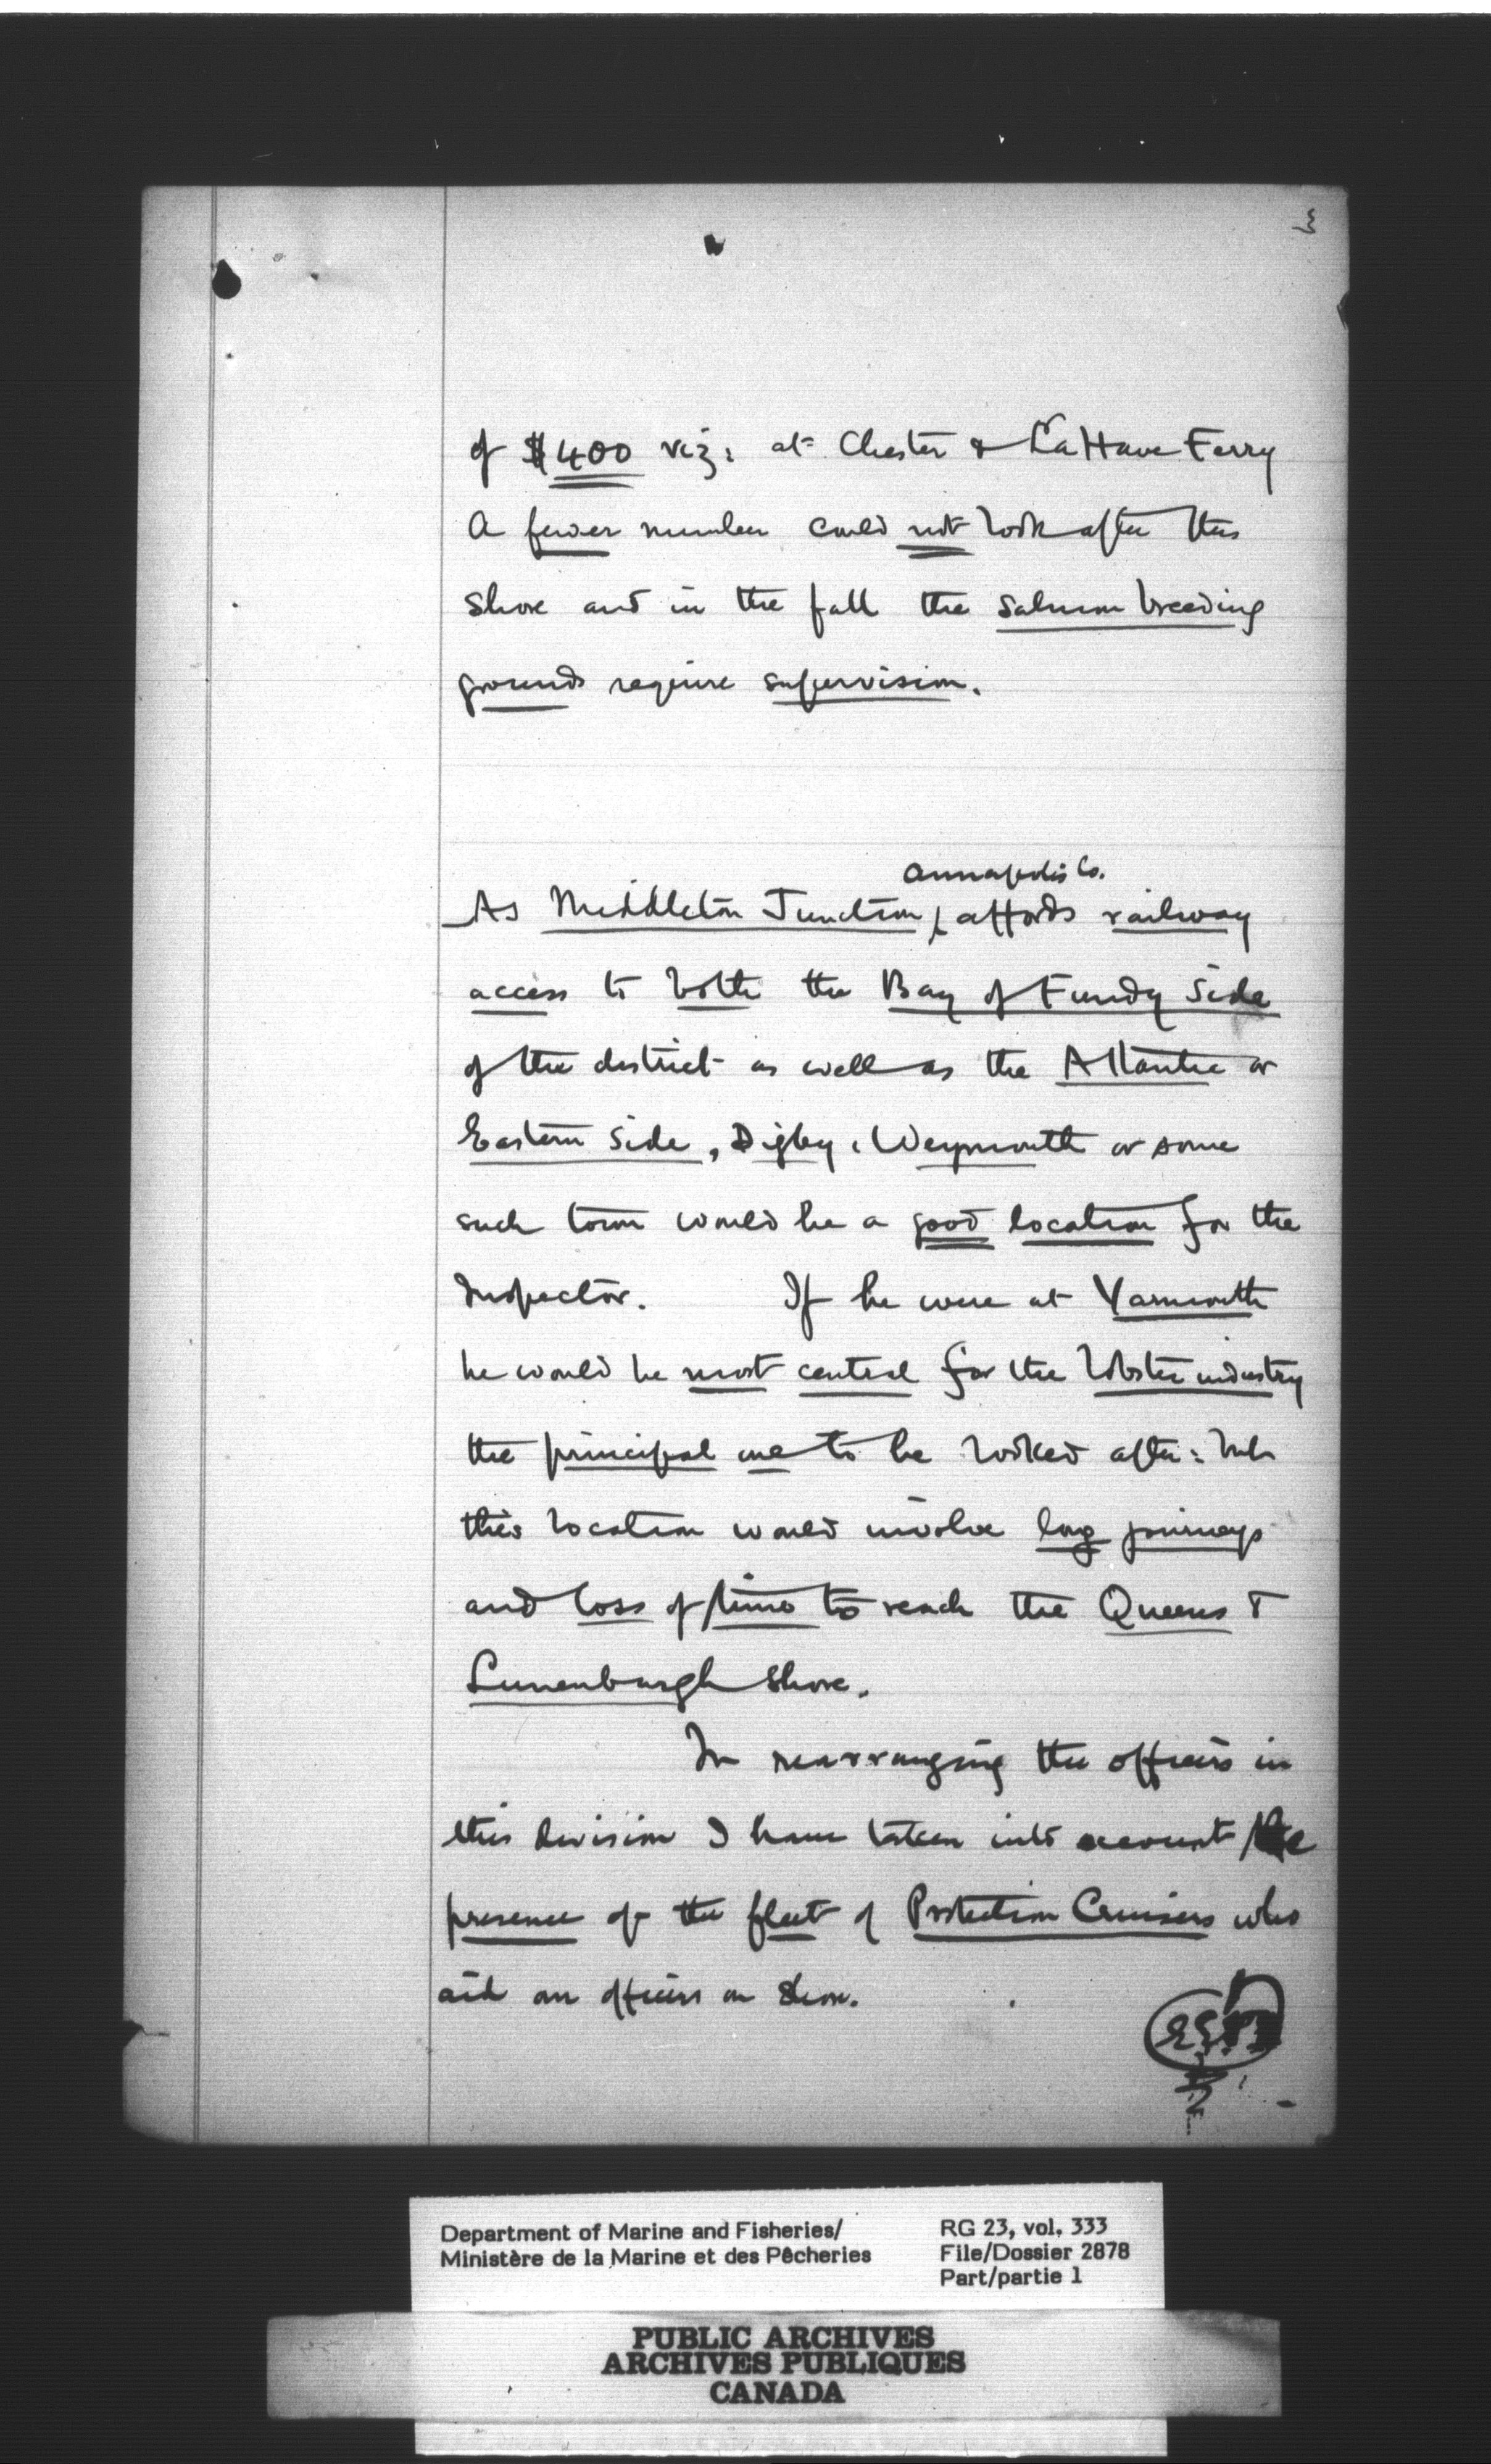 3
of $400 viz: at Chester & LaHave Ferry
A fewer number could not look after this
shore and in the fall the salmon breeding
grounds require supervision.
Annapolis Co.
As Middleton Junction, affords railway
access to both the Bay of Fundy Side
of the district as well as the Atlantic or
Eastern Side, Digby, Weymouth or some
such town would be a good location for the
Inspector. If he were at Yarmouth
he would be most central for the lobster industry
the principal one to be looked after: but
this location would involve long journeys
and loss of time to reach the Queens &
Lunenburgh shore.
In rearranging the officers in
this division I have taken into account the
presence of the fleet of Protection Cruisers who
aid our officers on shore.
Department of Marine and Fisheries/
Ministère de la Marine et des Pêcheries
RG 23, vol. 333
File/Dossier 2878
Part/partie 1
PUBLIC ARCHIVES
ARCHIVES PUBLIQUES
CANADA